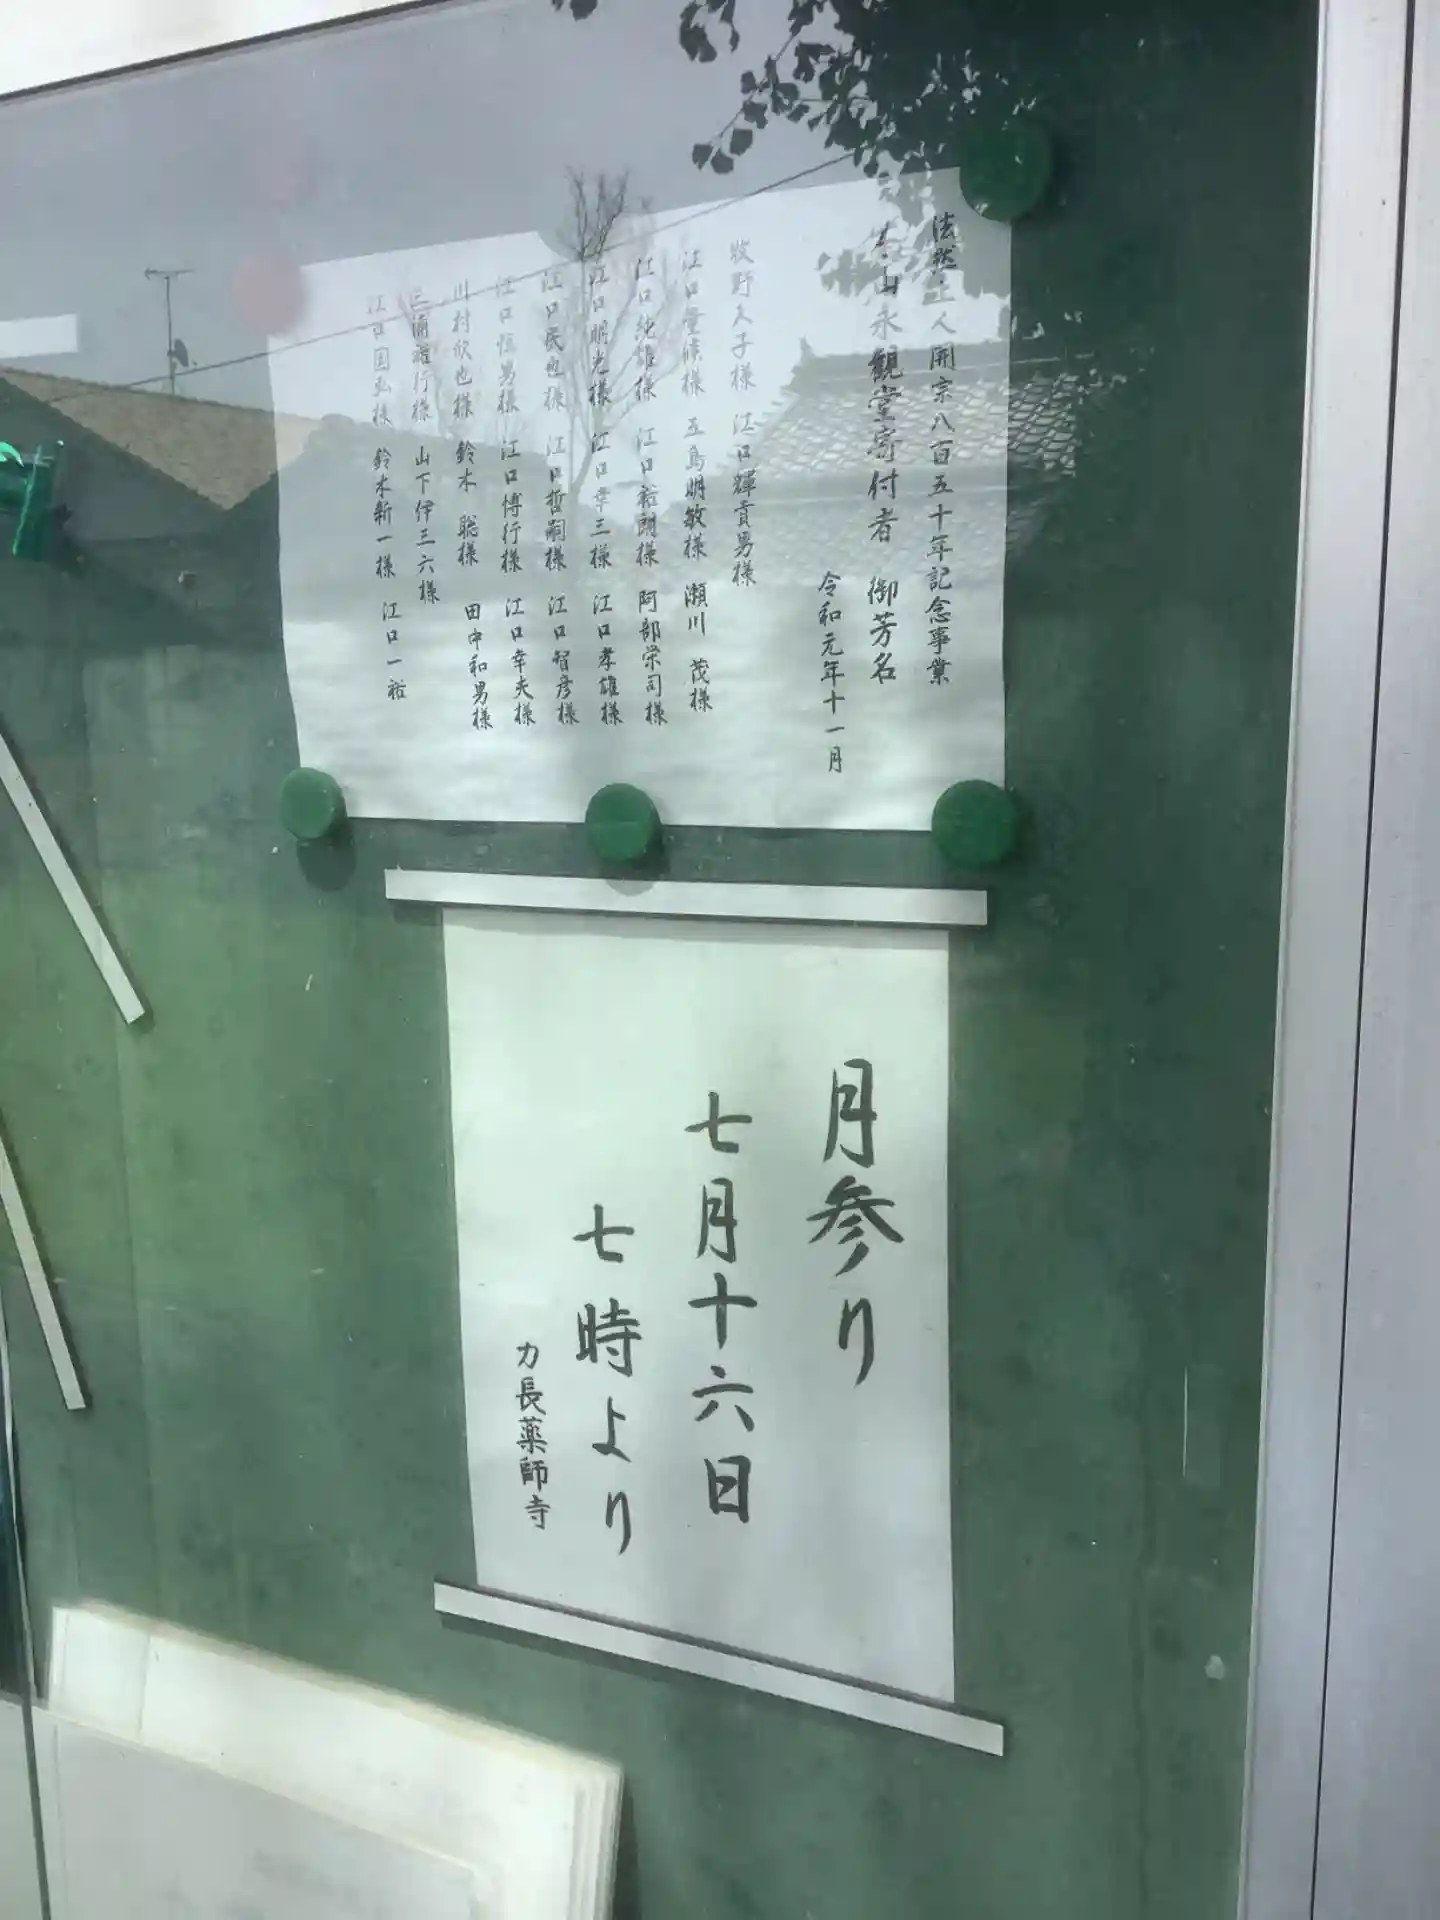 法然上人開宗八百五十年記念事業
本山永観堂寄付者 御芳名
令和元年十一月
牧野久子様 江口輝貢男様
江口 様 五島明敏様 瀬川 茂様
江口純雄様 江口裕朗様 阿部栄司様
江口明光様 江口幸三様 江口孝雄様
江口民也様 江口哲嗣様 江口智彦様
江口恒男様 江口博行様 江口幸夫様
川村欣也様 鈴木 聡様 田中和男様
三浦 行様 山下伊三六様
江口国弘様 鈴木新一様 江口一裕
月参り
七月十六日
七時より
力長薬師寺